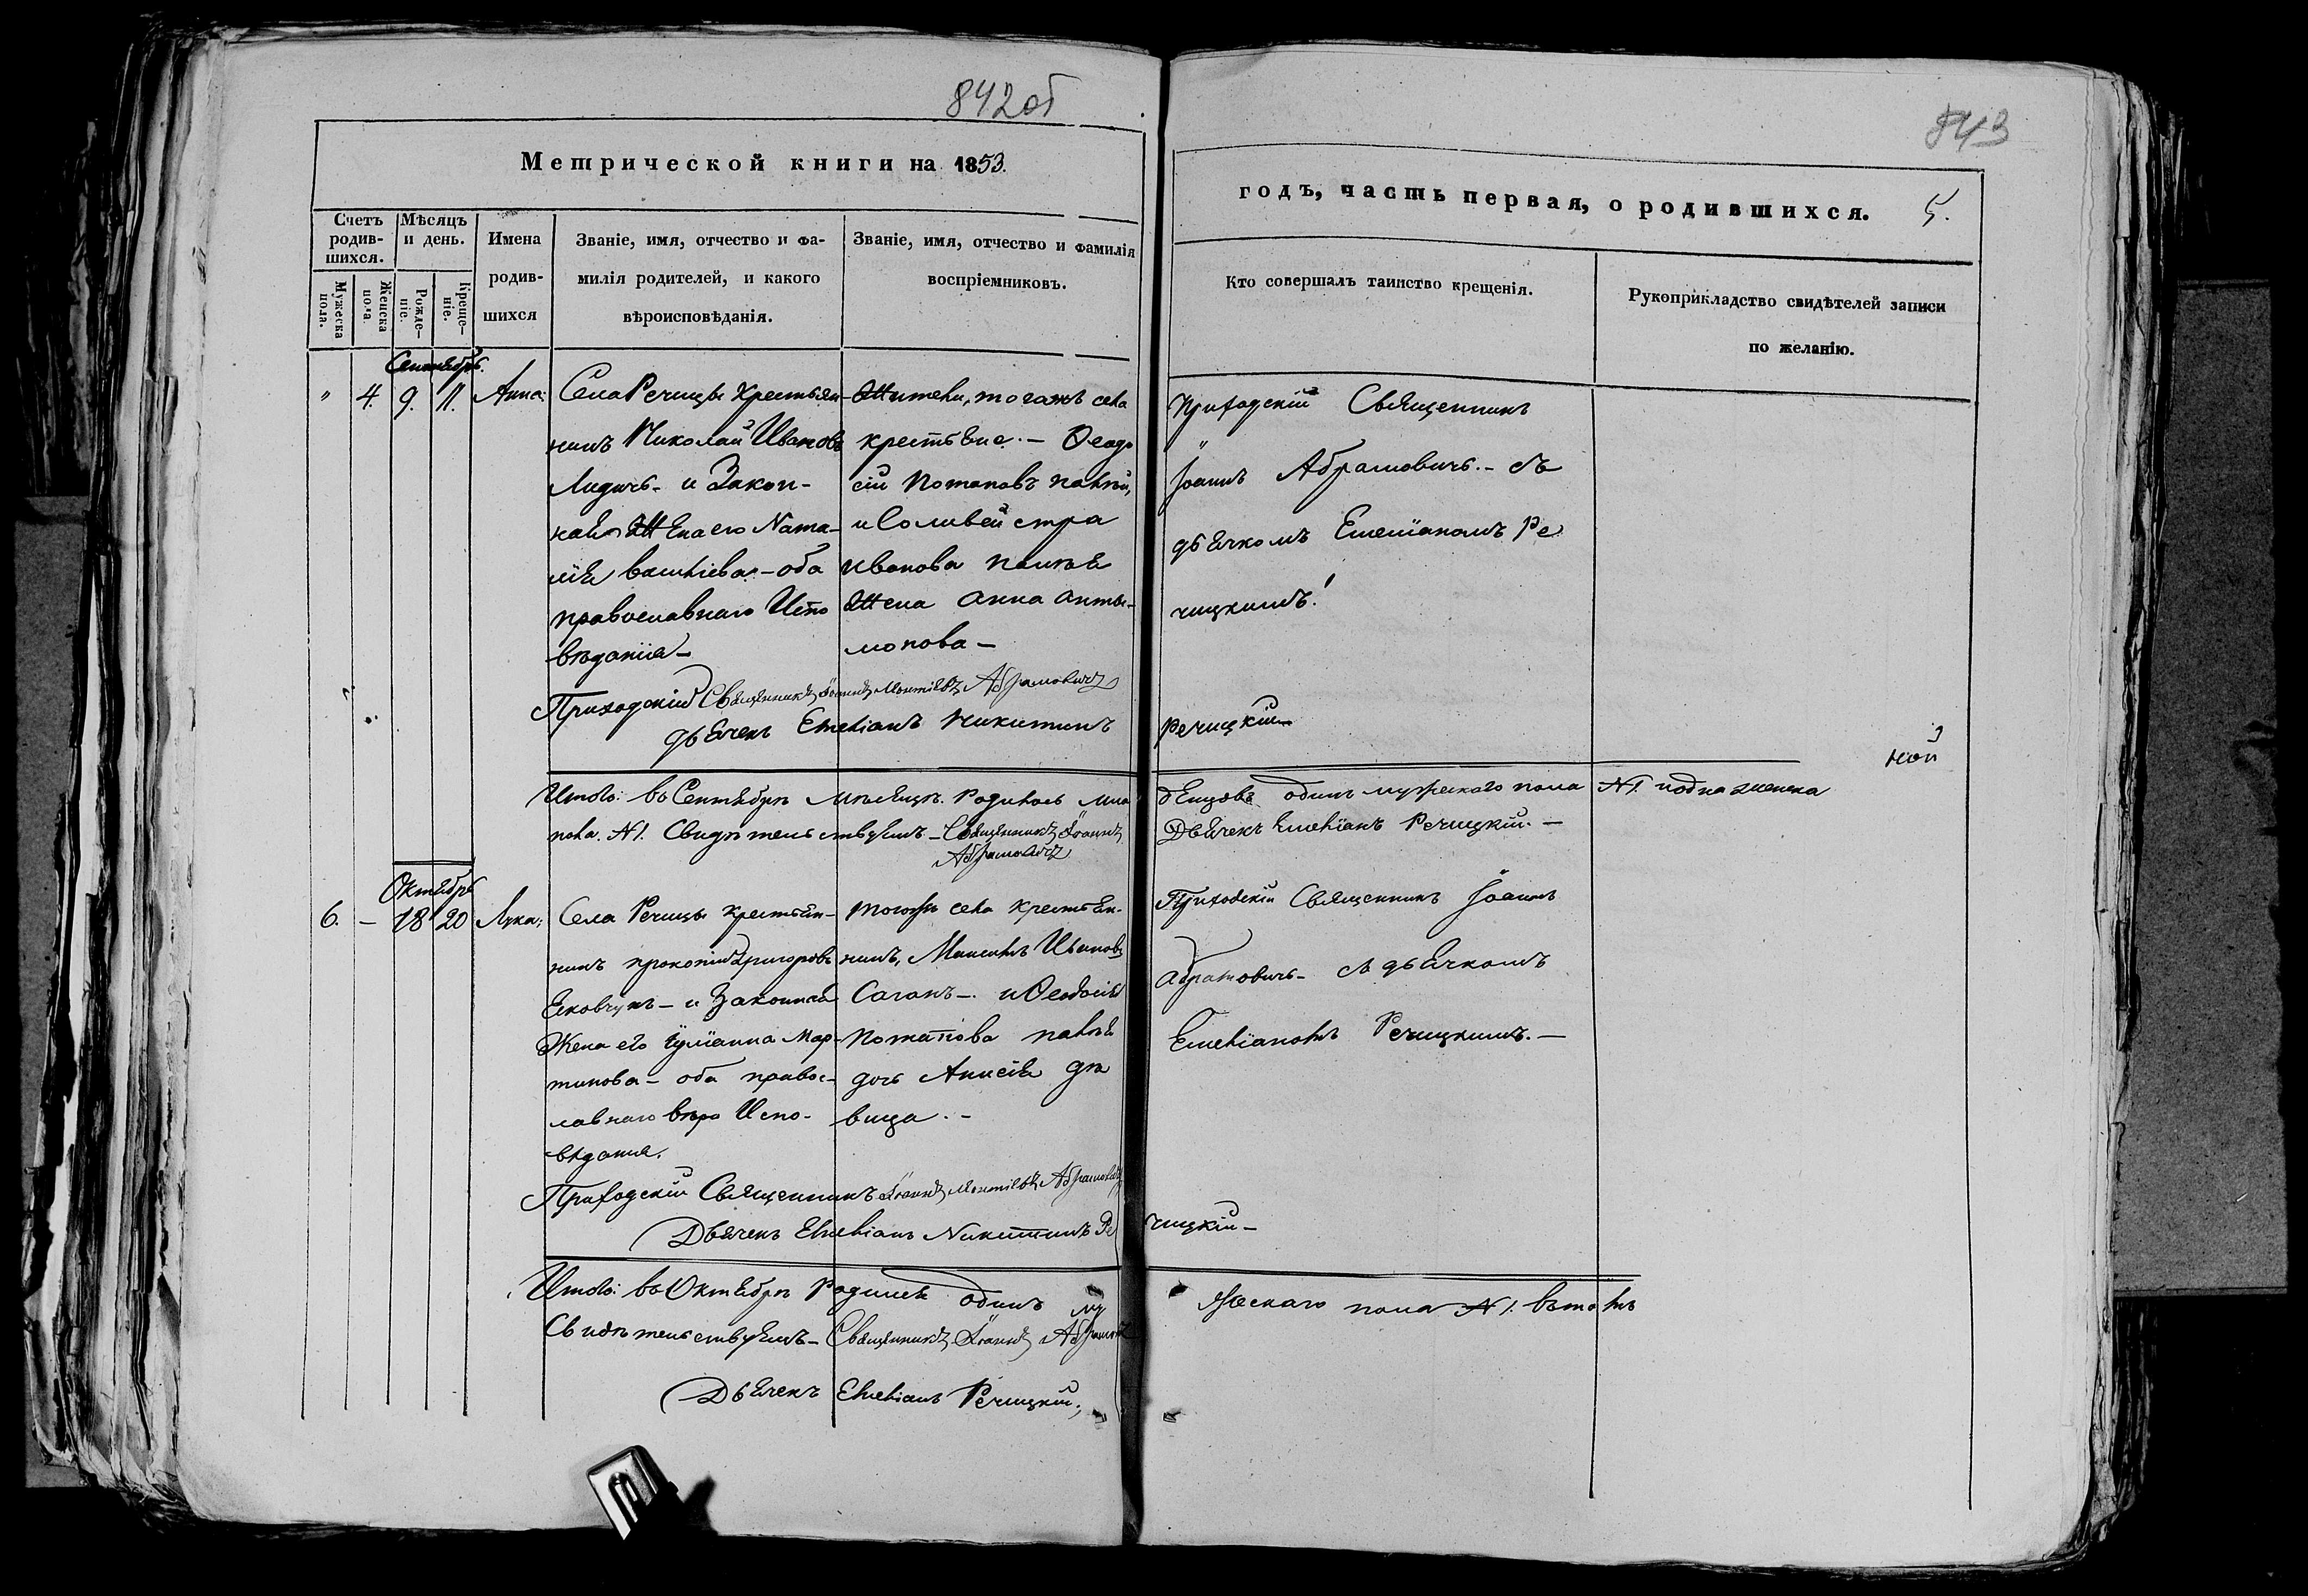 842 об
843
Метрической книги на 1853.
годъ, часть первая, о родившихся. 5.
Счетъ родив-шихся.
Мѣсяцъ и день.
Имена родив-шихся
Званіе, имя, отчество и фа-
милія родителей, и какого
вѣроисповѣданія.
Званіе, имя, отчество и фамилія
воспріемниковъ.
Кто совершалъ таинство крещенія.
Рукоприкладство свидѣтелей записи
по желанію.
Мужеска пола.
Женска пола.
Рожде-ніе.
Креще-ніе.
Сентябрь.
" 4. 9. 11. Анна:
Села Речицы Крестьян-
нинъ Николай Ивановъ
Лидичъ- и Закон-
ная Жена его Ната-
лія - оба
православнаго Испо
вѣданія-
Жители, тогожъ села
крестьяне.- Феодо
сій Потаповъ
и
Иванова
Жена Анна Анты-
монова-
Приходскій Священникъ
Іоаннъ Абрамовичъ.- съ
дьячкомъ Емеліаномъ Ре
чицкимъ!
Приходскій Священникъ Іоаннъ Абрамовичъ
дьячекъ Емеліанъ Никитинъ Речицкій
Итого: въ Сентябрѣ Мѣсяцѣ. Родилось Мла денцовъ одинъ мужескаго пола №1. и одна женска ной
пола. №1. Свидѣтельствуемъ- Священникъ Іоаннъ Абрамовичъ Дьячекъ Емеліанъ Речицкій.-
Октябрь
6. - 18 20 Лука;
Села Речицы крестьян-
нинъ Прокопій Григоровъ
и Законная
Жена его Іуліанна Мар-
тинова- оба правос-
лавнаго вѣро Испо-
вѣданія.
тогожъ села крестьян-
нинъ, Максимъ Ивановъ
Саганъ-. и Феодосія
Потапова
дочь Анисія дѣ
вица.-
Приходскій Священникъ Іоаннъ
Абрамовичъ- съ дьячкомъ
Емеліаномъ Речицкимъ.-
Приходскій Священникъ Іоаннъ Абрамовичъ
Дьячекъ Емеліанъ Никитинъ Ре чицкій-
Итого: въ Октябрѣ Родился одинъ му жескаго пола №1. въ томъ
Свидѣтельствуемъ- Священникъ Іоаннъ Абрамовичъ
Дьячекъ Емеліанъ Речицкій;